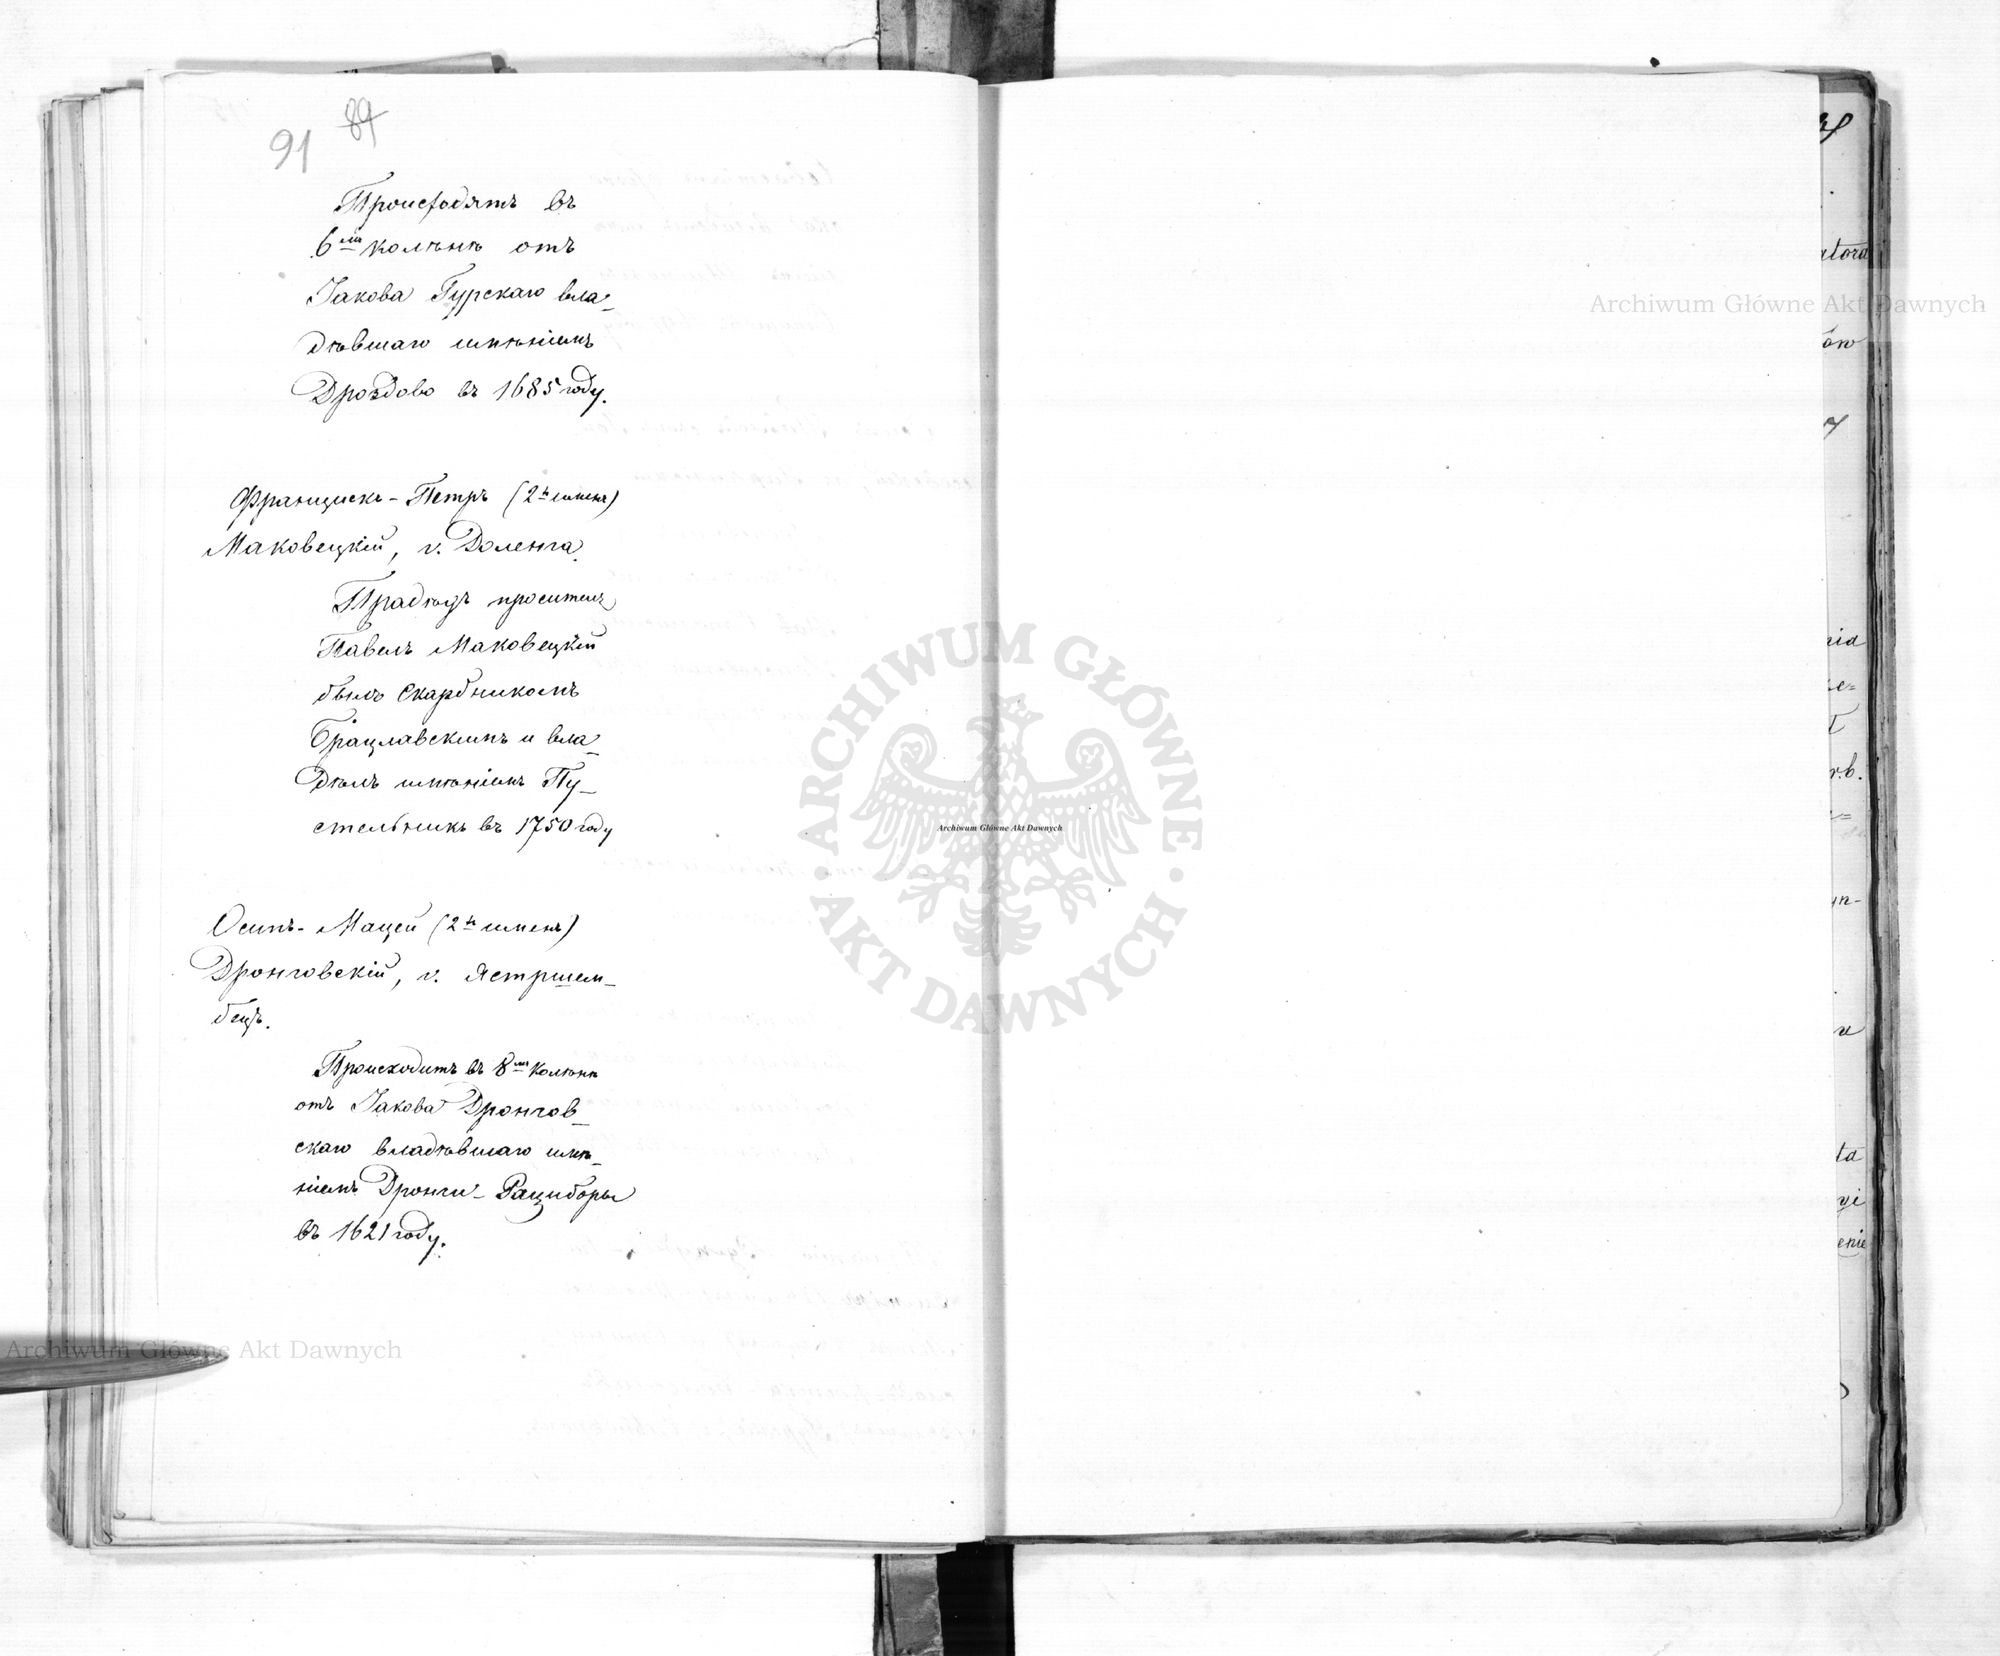 91 89
Происходятъ въ
6мъ колѣнѣ отъ
Іакова Гурскаго вла-
дѣвшаго имѣніемъ
Дроздово въ 1685 году.
Францискъ-Петръ (2хъ именъ)
Маковецкій, г. Доленга.
Прадѣдъ просителя
Павелъ Маковецкій
былъ Скарбникомъ
Брацлавскимъ и вла-
дѣлъ имѣніемъ Пу-
стельникъ въ 1750 году
Осипъ-Мацей (2хъ именъ)
Дронговскій, г. Ястршем-
бецъ.
Происходитъ въ 8мъ колѣнѣ
отъ Іакова Дронгов-
скаго владѣвшаго имѣ-
ніемъ Дронги-Рациборы
въ 1621 году.
Archiwum Główne Akt Dawnych
ARCHIWUM GŁÓWNE
AKT DAWNYCH
Archiwum Główne Akt Dawnych
Archiwum Główne Akt Dawnych